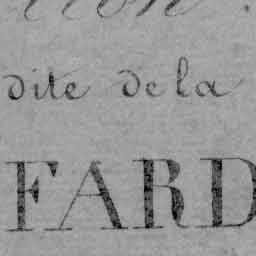 dite de la
FARD